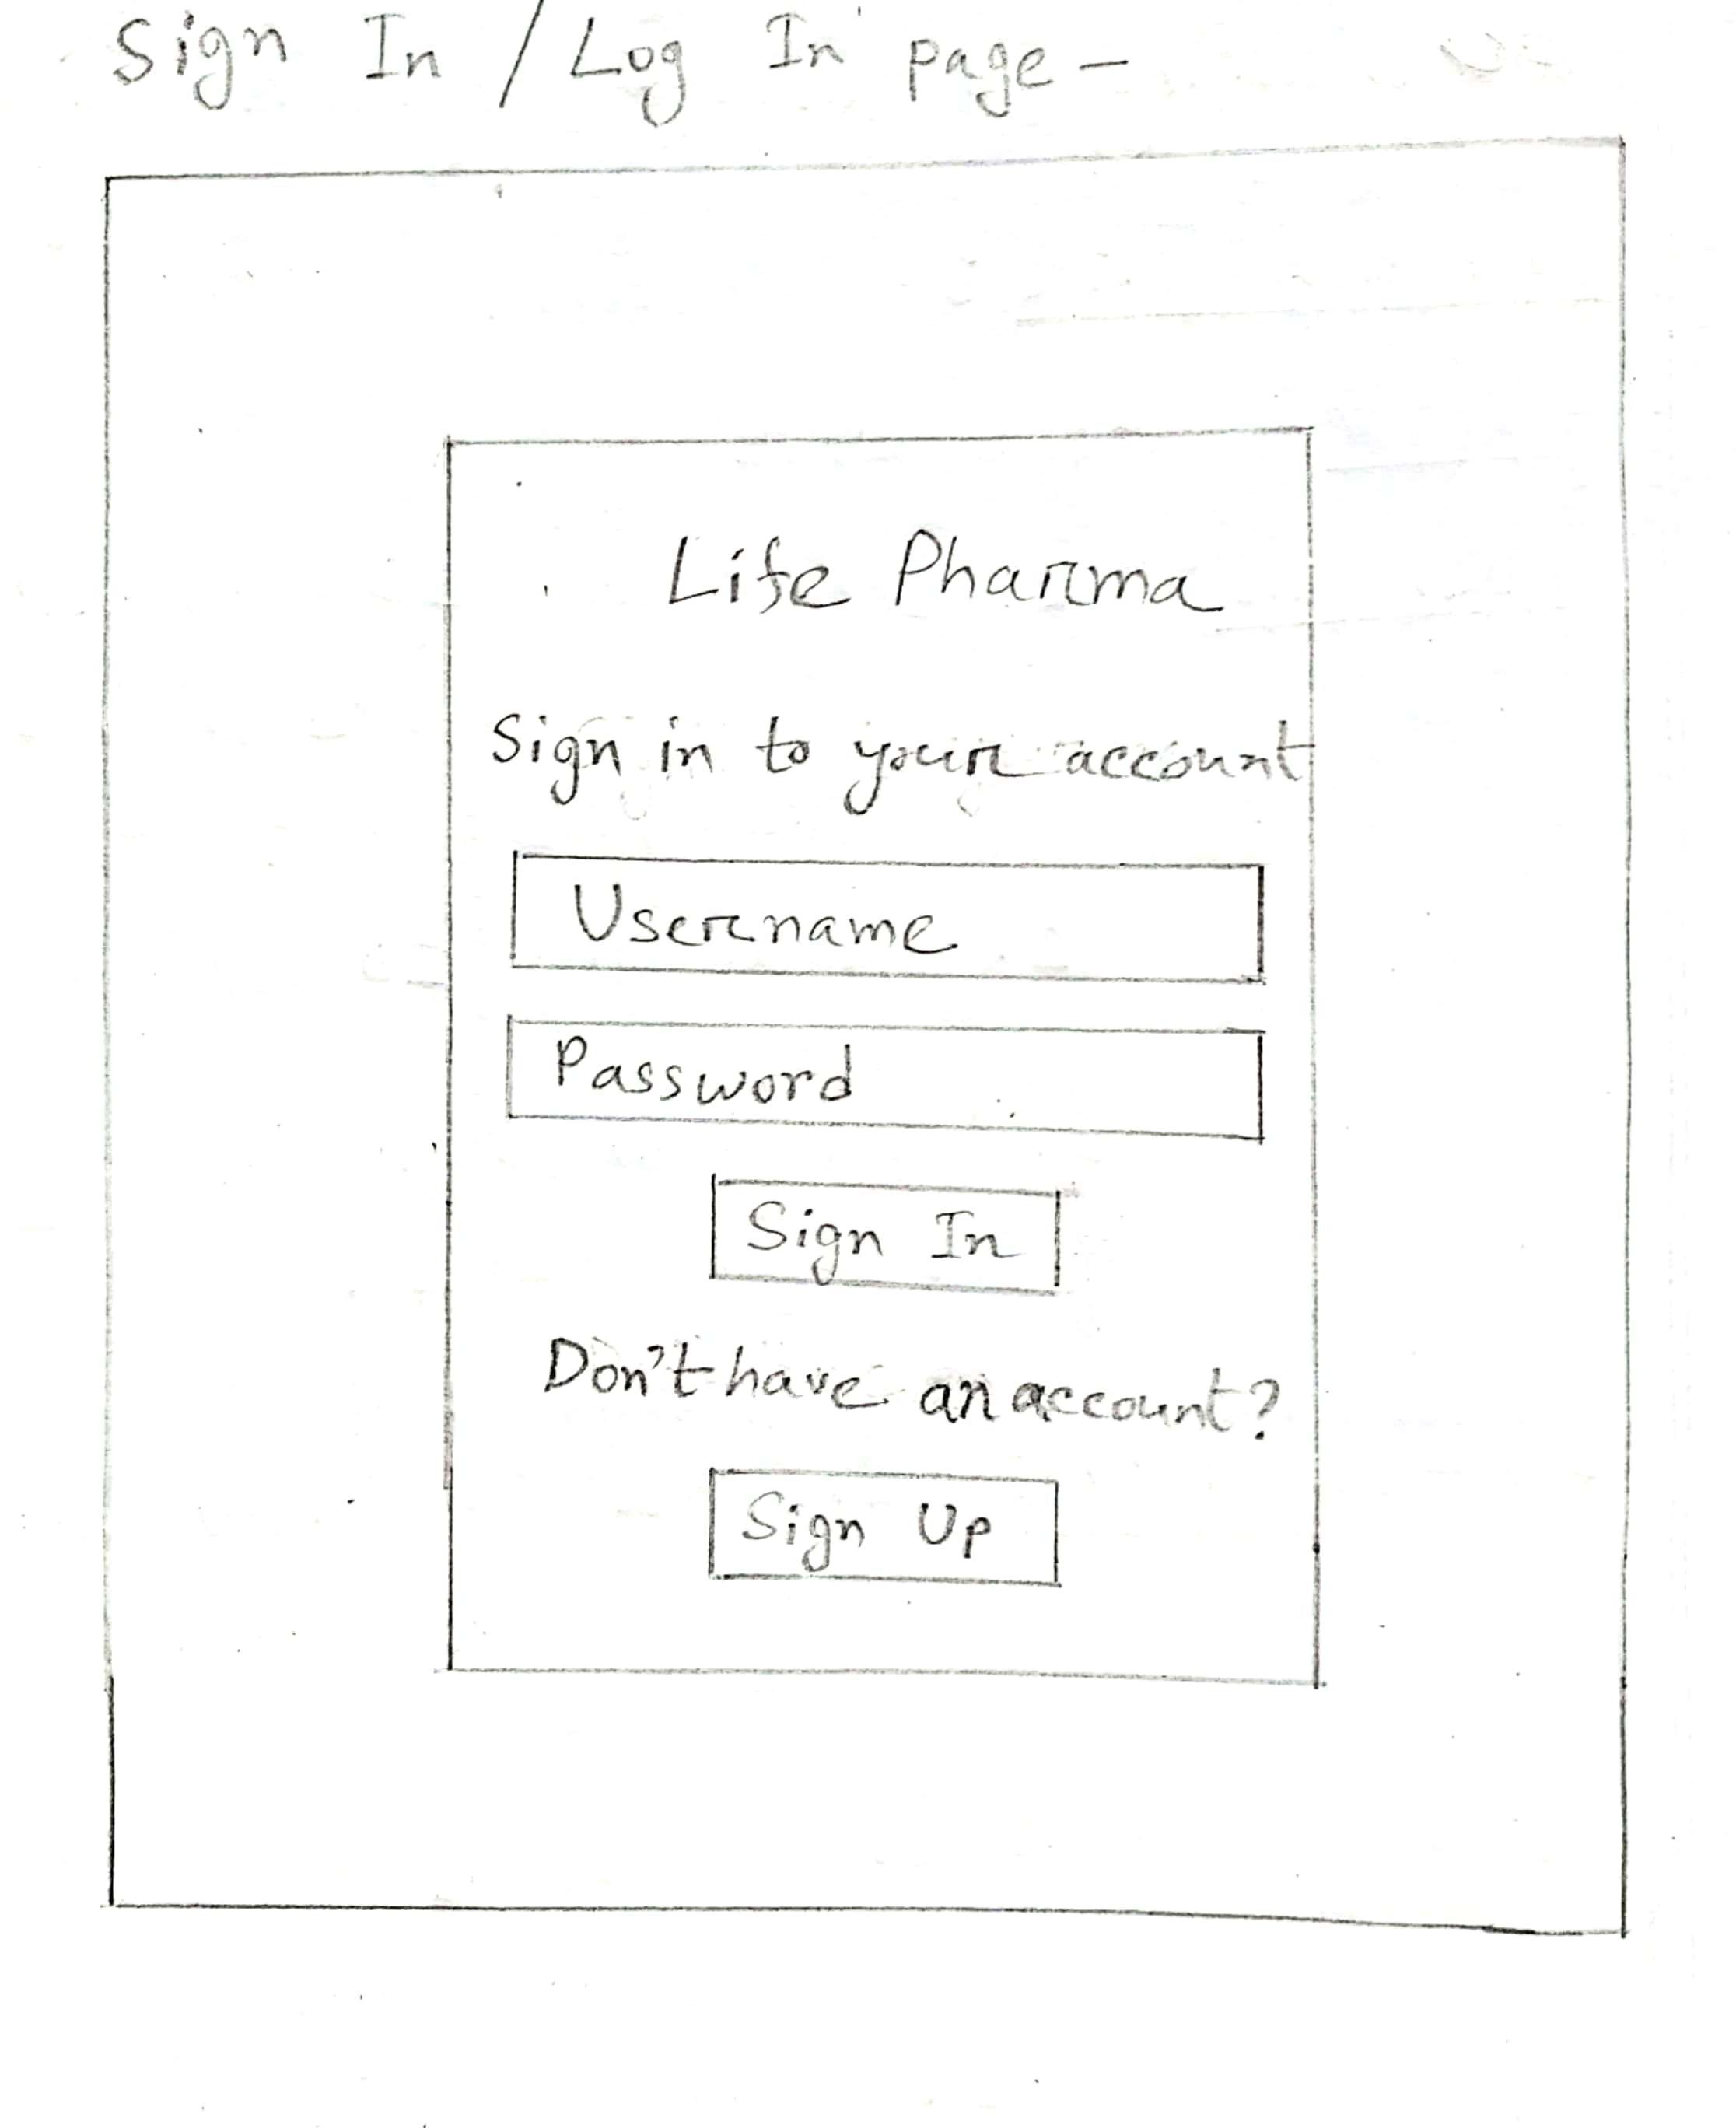 Sign In / Log In page -
Life Pharma
Sign in to your account
Username
Password
Sign In
Don't have an account?
Sign Up